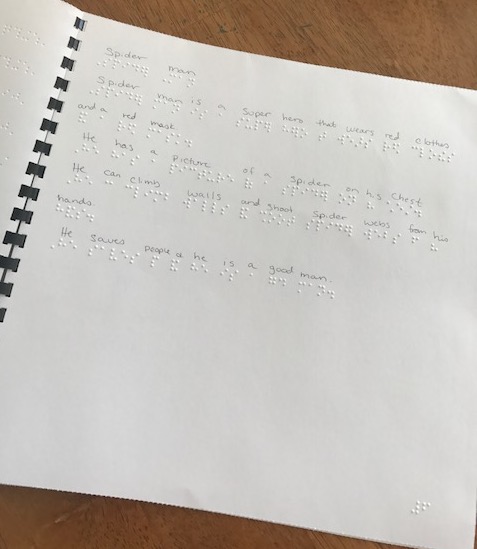 Spider man
Spider man is a super hero that wears red clothes
and a red mask.
He has a picture of a spider on his chest
He can climb walls and shoot spider webs from his
hands.
He saves people & he is a good man.